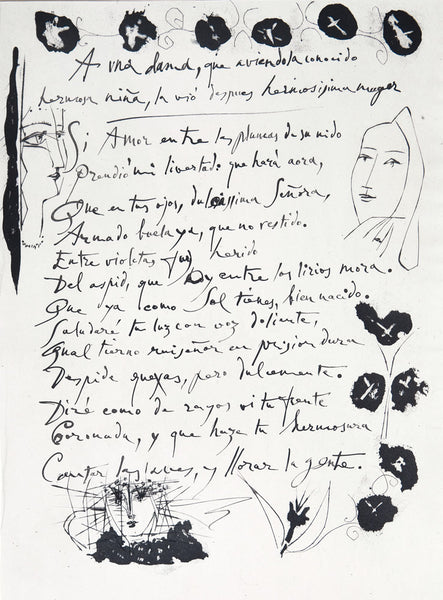 A una dama, que aviendola conocido
hermosa niña, la vió despues hermosisima muger
Si Amor entre las plumas de su nido
Prendió mi libertad que hará aora,
Que en tus ojos, dulcissima Señora,
Armado buela ya, que no vestido.
Entre violetas fuy herido
Del aspid, que oy entre los lirios mora.
Que ya como Sol tienes, bien nacido.
Saludaré tu luz con voz doliente,
Qual tierno ruiseñor en prision dura
Despide quexas, pero dulcemente.
Diré como de rayos vi tu frente
Coronada, y que haze tu hermosura
Cantar las aves, y llorar la gente.